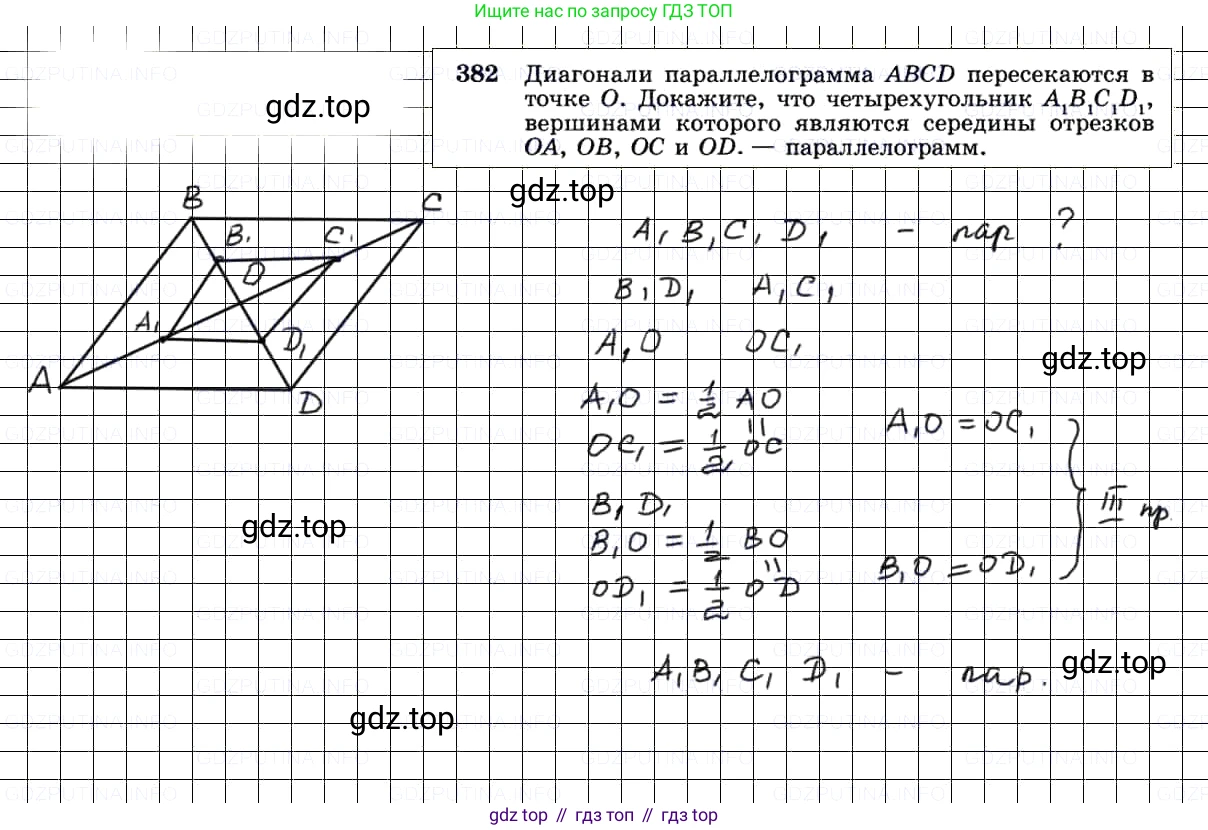 Ищите нас по запросу ГДЗ ТОП
382 Диагонали параллелограмма ABCD пересекаются в
точке O. Докажите, что четырехугольник A₁B₁C₁D₁,
вершинами которого являются середины отрезков
OA, OB, OC и OD. — параллелограмм.
gdz.top
gdz.top
B
C
B₁
C₁
O
A₁
D₁
A
D
A₁ B₁ C₁ D₁ – пар ?
B₁ D₁ A₁ C₁
A₁O OC₁
gdz.top
A₁O = 1/2 AO
OC₁ = 1/2 OC
A₁O = OC₁
B₁ D₁
B₁O = 1/2 BO
OD₁ = 1/2 OD
B₁O = OD₁
III пр.
gdz.top
A₁B₁ C₁ D₁ – пар.
gdz.top
gdz.top
gdz top // гдз топ // gdz top
GDZPUTINA.INFO